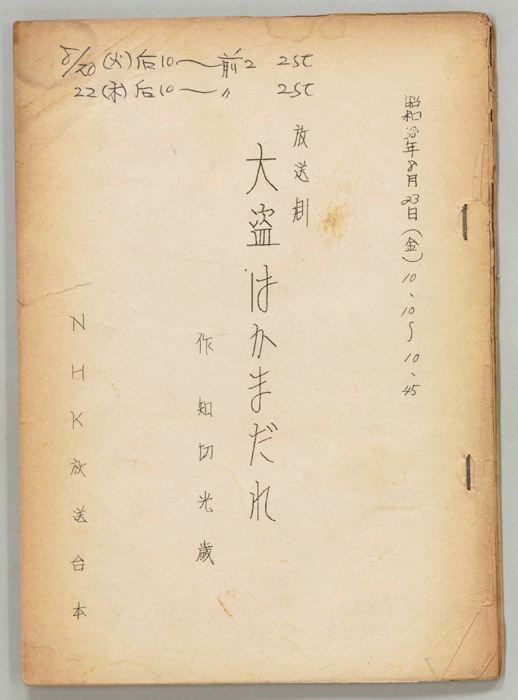 8/20(火)后10〜前2 2St
22(木)后10〜〃 2St
昭和38年8月23日(金)10、10〜10、45
放送劇
大盗はかまだれ
作 知切光歳
NHK放送台本